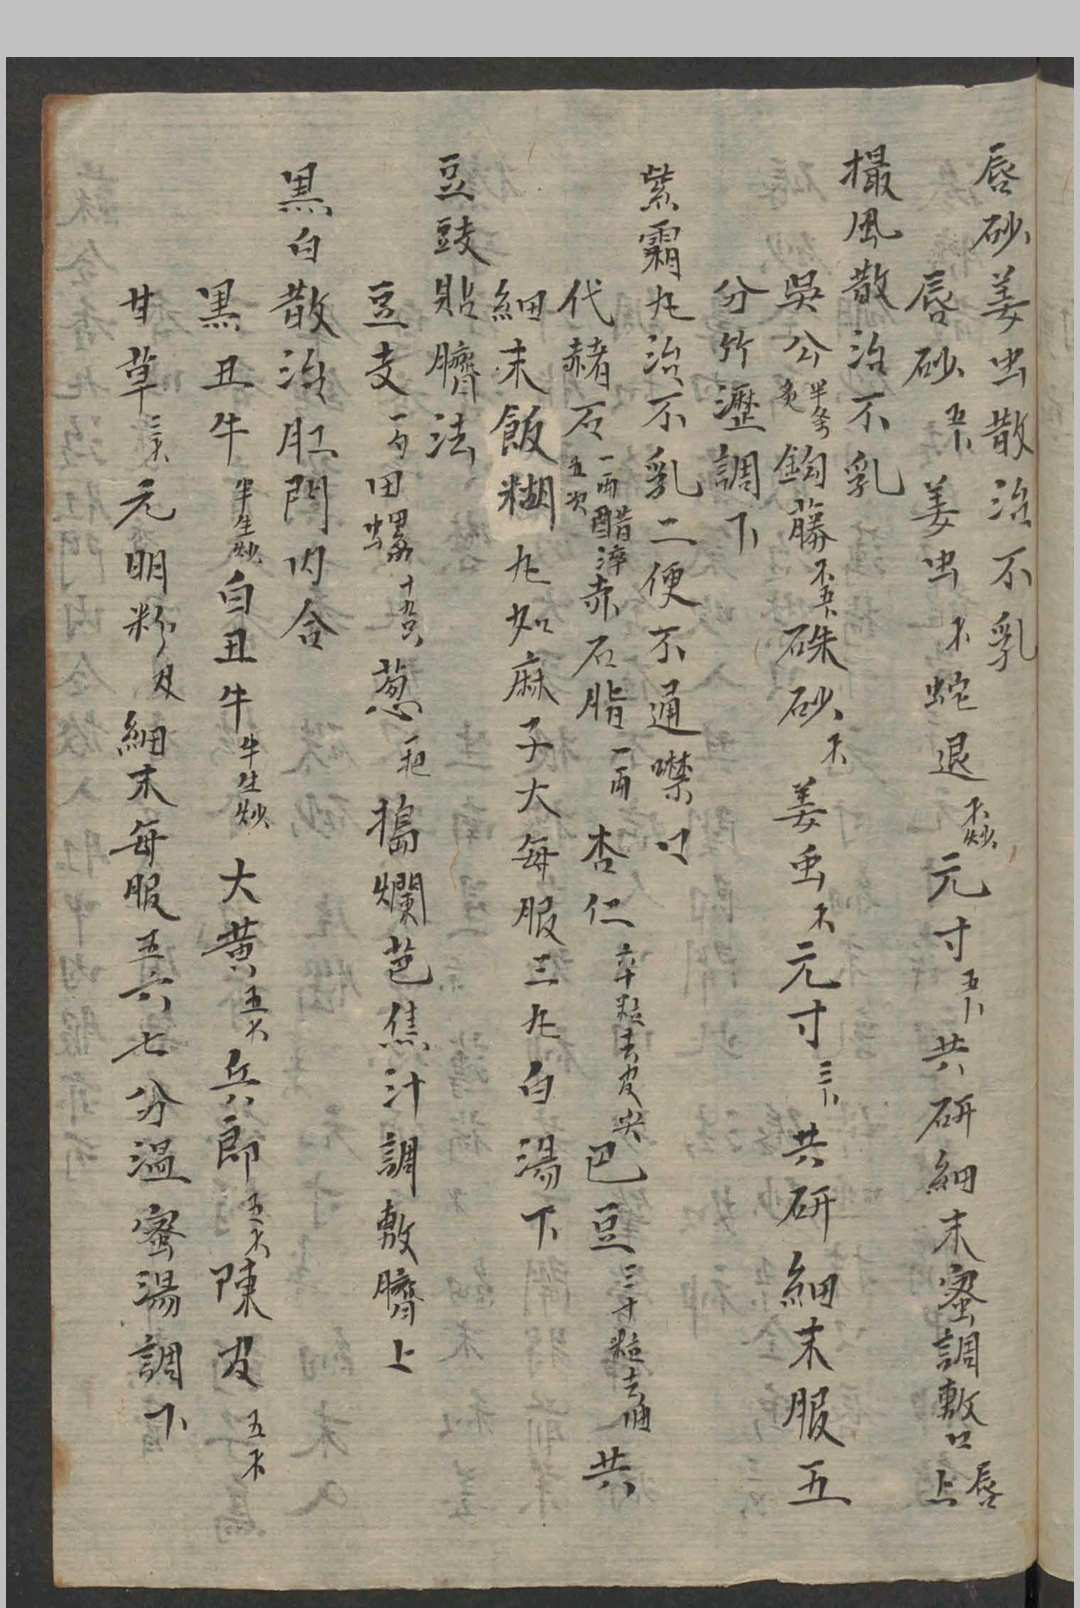 唇砂姜虫散治不乳
唇砂五卜姜虫不蛇退不炒元寸五卜共研細末蜜調敷口唇上
撮風散治不乳
吳公半条炙鈎藤不五卜硃砂不姜虫不元寸三卜共研細末服五
分竹瀝調下
紫霜丸治不乳二便不通噤口
代赭石一両醋淬五次赤石脂一両杏仁六十粒去皮尖巴豆三十粒去油共
細末飯糊丸如麻子大每服三丸白湯下
豆豉貼臍法
豆支一勺田螺十九只葱一把搗爛芭焦汁調敷臍上
黑白散治肛門内合
黑丑牛半生炒白丑牛半生炒大黄五不兵郎五不陳皮五不
甘草三不元明粉及細末每服五六七分溫蜜湯調下